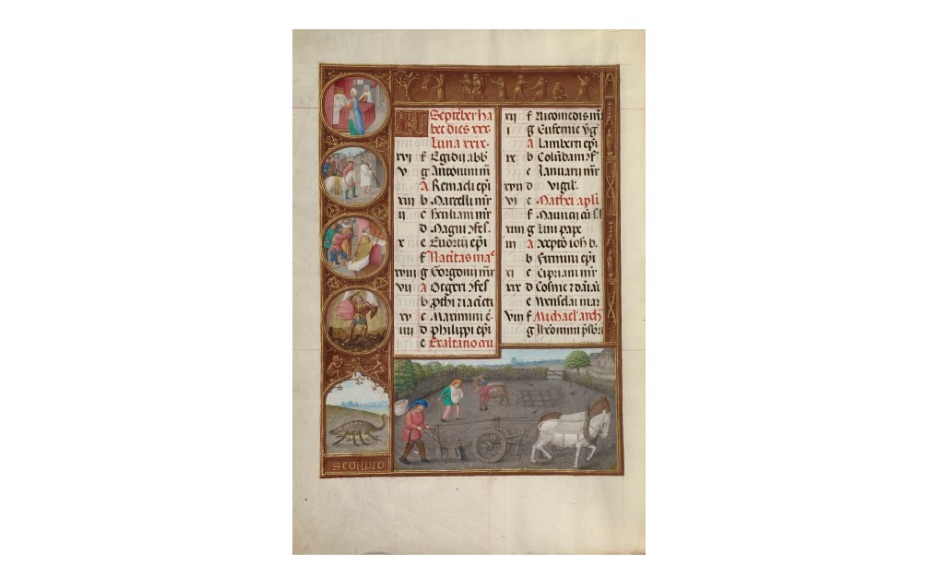 Septēber ha
bet dies xxx.
Luna xxix.
xvi f Egidij abb̄
v g Antonini m̄
A Remacli ep̄i
xiii b Marcelli mr̄
ii c
d Magni
x e Euortij ep̄i
f Natiitas ma
xviii g Gorgonij mr̄
vii A
b p̄thi z iacīcti
xv c Maximini
iiii d philippi ep̄i
e Exaltatio cru
xii f Nicomedis mr̄
i g Eufemie v̄g
A Lamberti ep̄i
ix b
c Ianuarij mr̄
xvii d Vigil'.
vi e Mathei ap̄li
f Mauricij
xiiii g Lini pape
iii A ioh b.
b Firmini ep̄i
xi c Cipriani mr̄
xix d Cosme z
e Wenselai mar
viii f Michael arch
g
SCORPIO